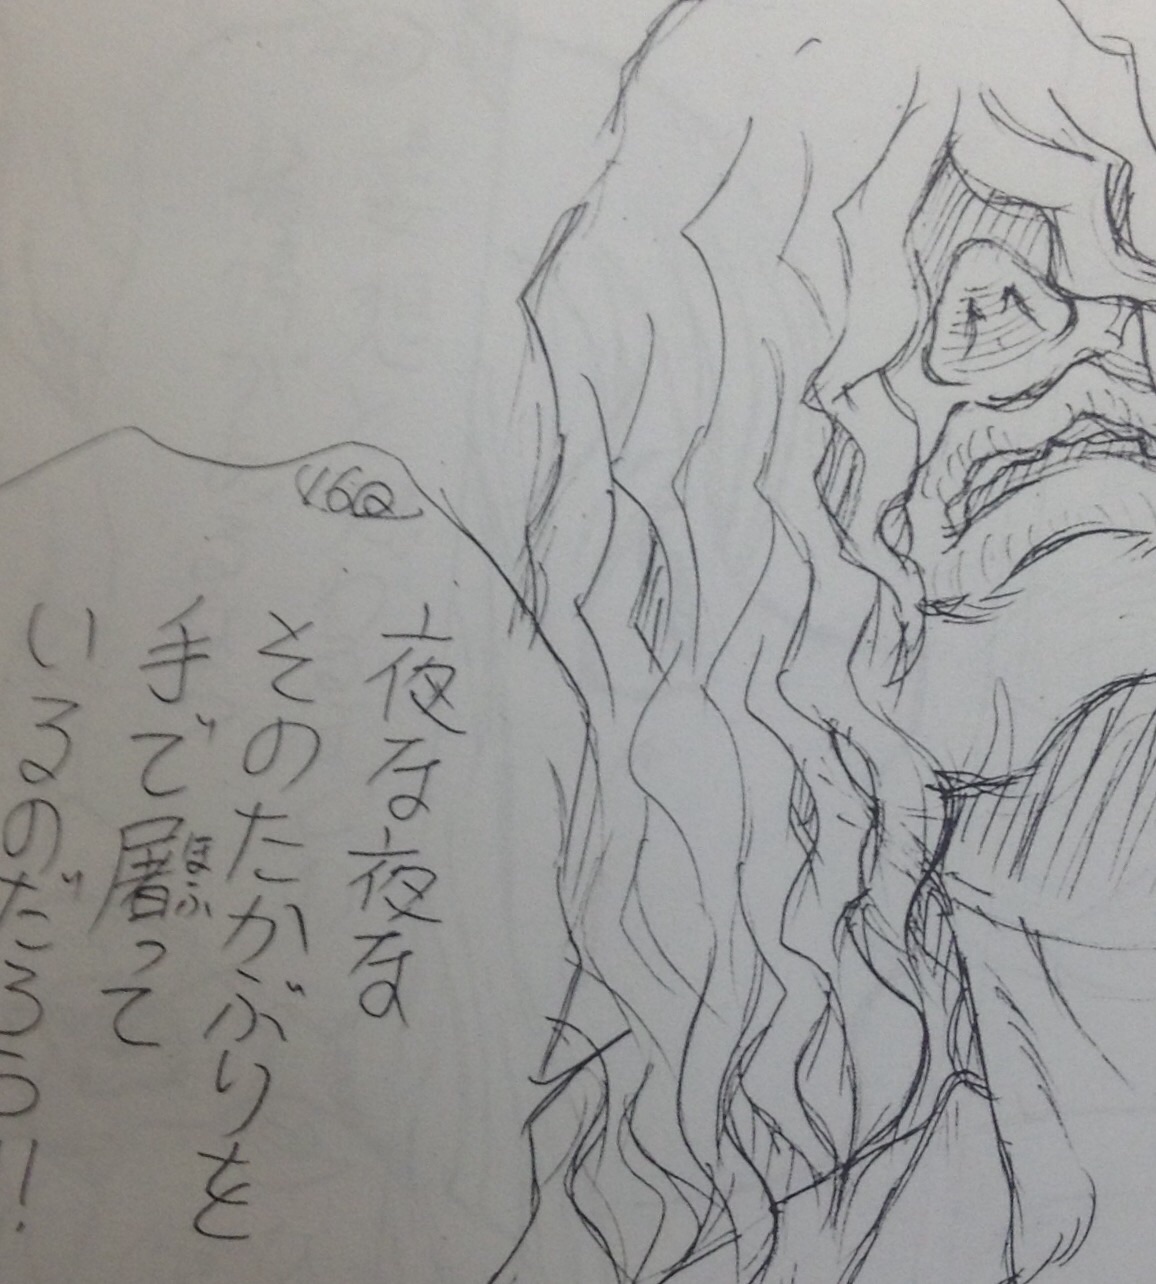 夜な夜な
そのたかぶりを
手で屠って
ほふ
いるのだろう!!